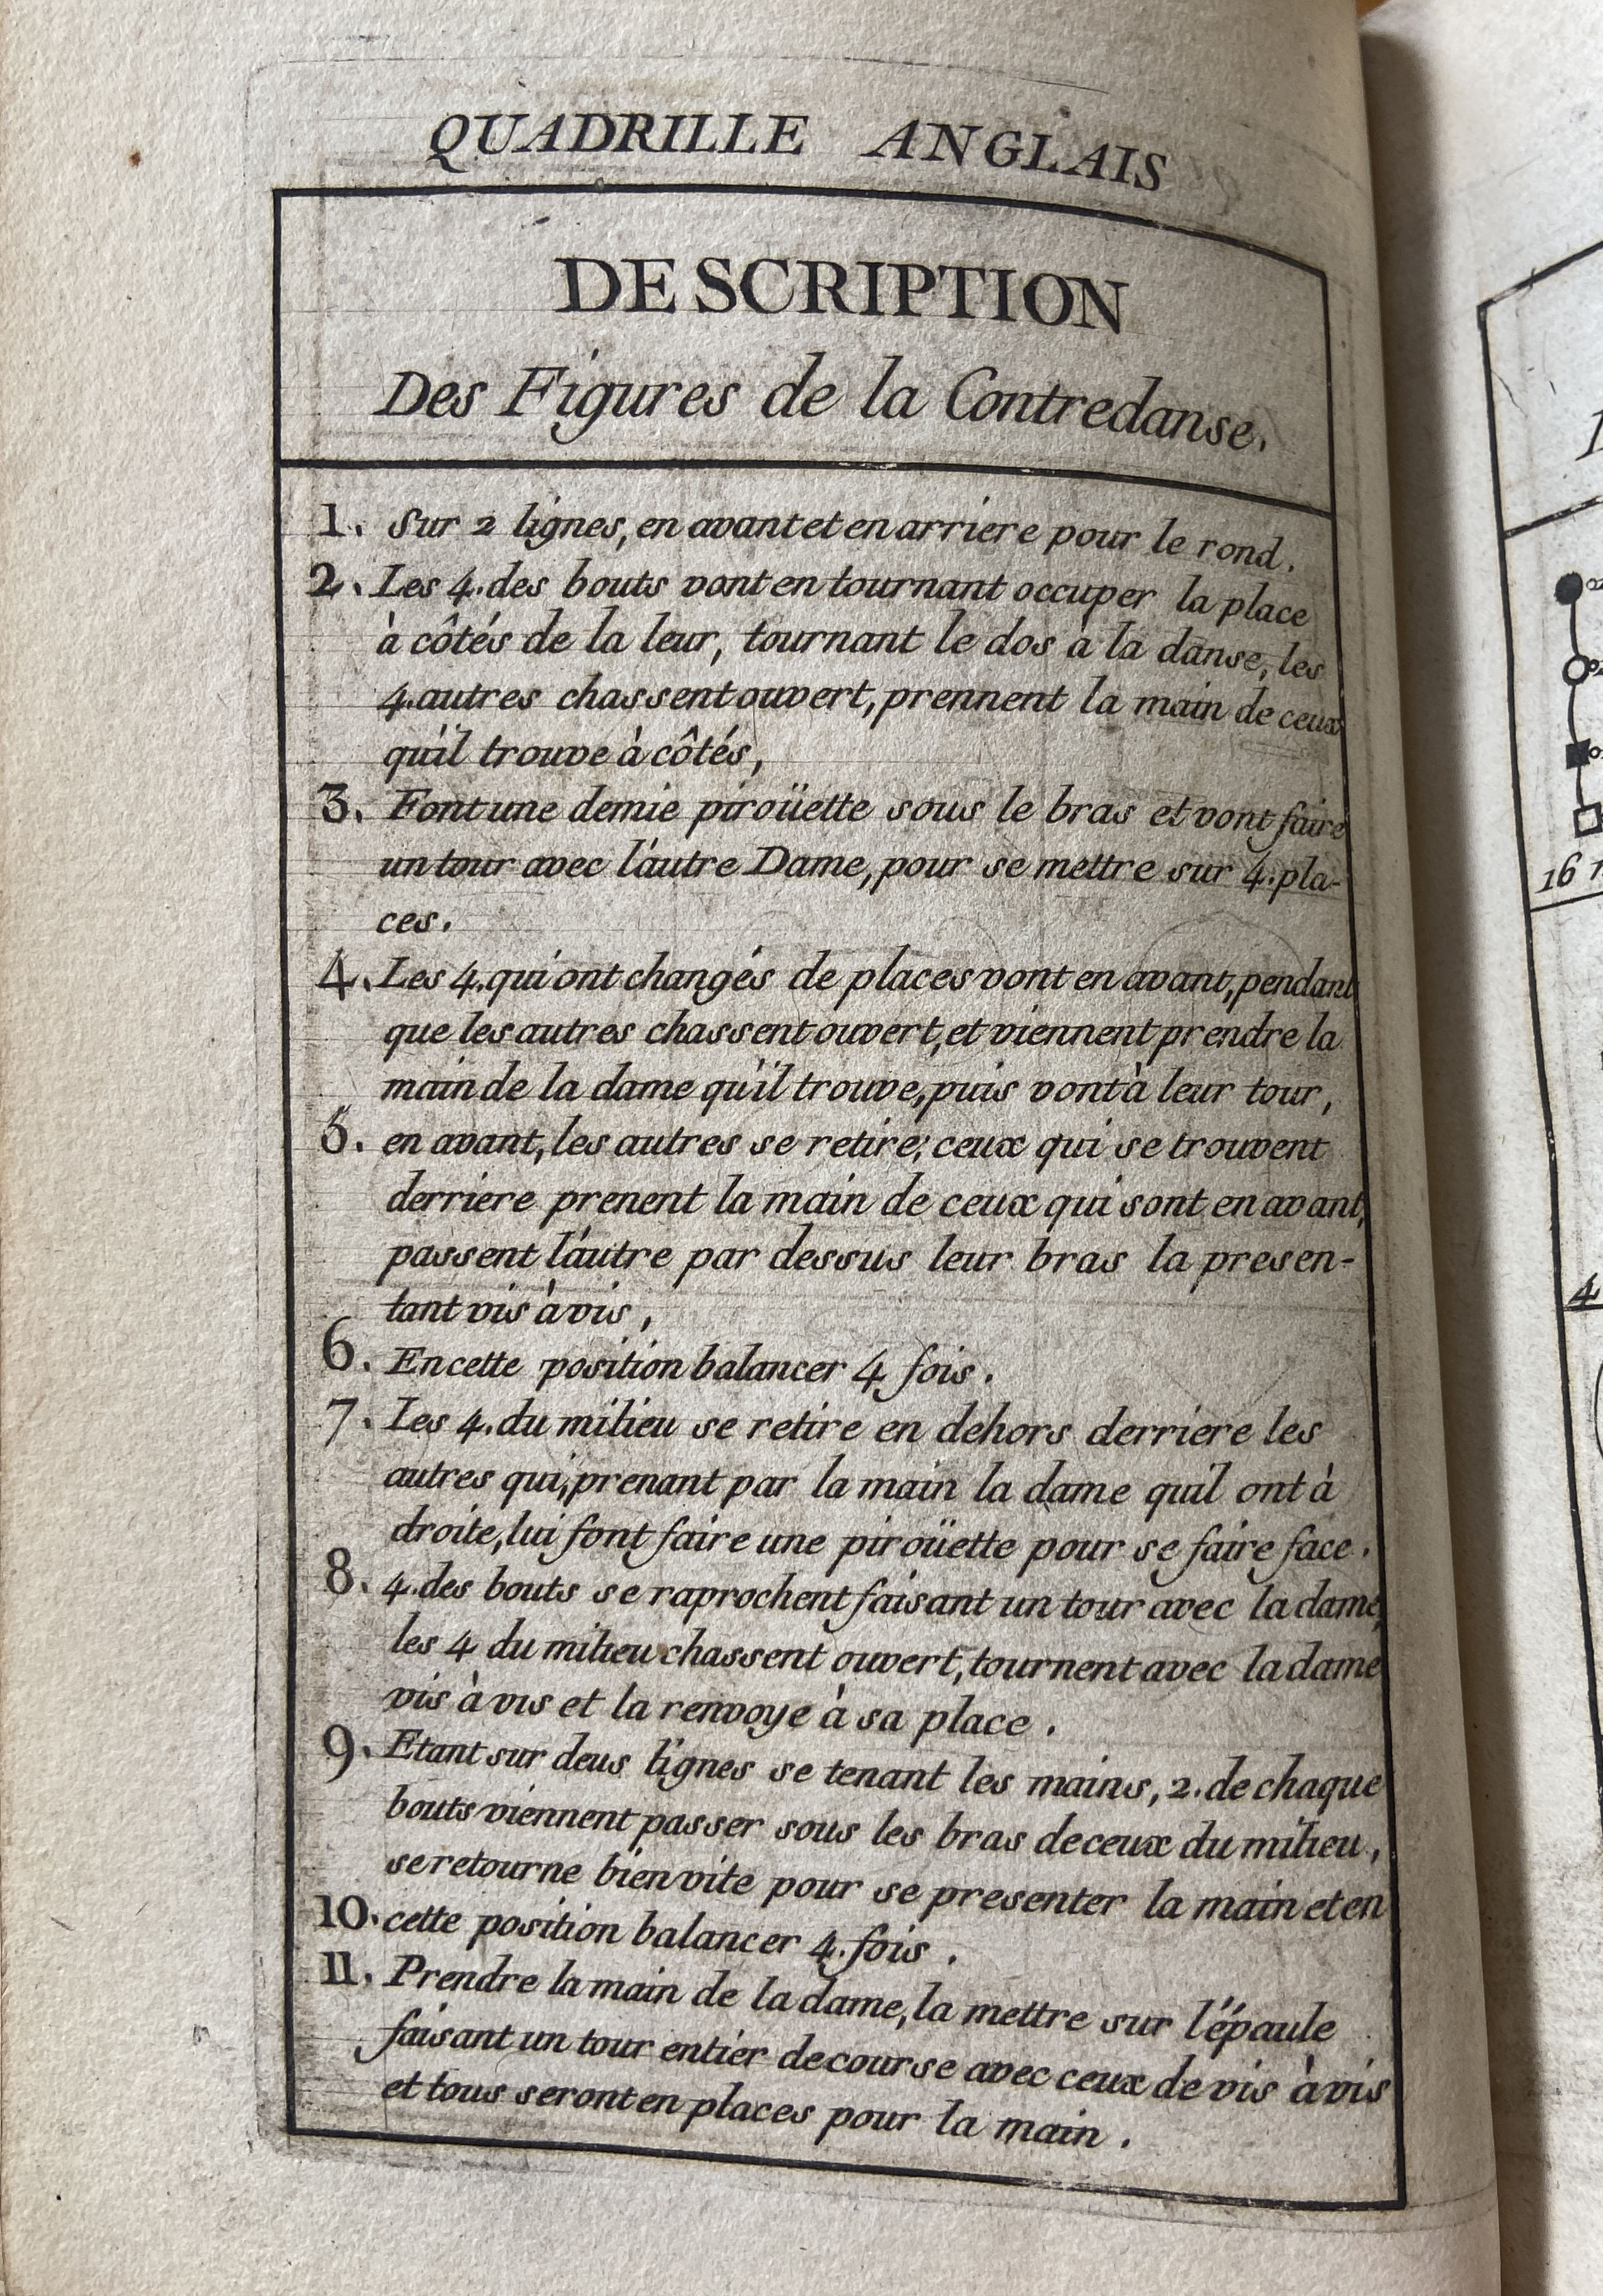 QUADRILLE ANGLAIS
DESCRIPTION
Des Figures de la Contredanse.
1. Sur 2 lignes, en avant et en arriere pour le rond.
2. Les 4. des bouts vont en tournant occuper la place
à côtés de la leur, tournant le dos à la danse, les
4. autres chassent ouvert, prennent la main de ceux
qu'il trouve à côtés,
3. Font une demie piroüette sous le bras et vont faire
un tour avec l'autre Dame, pour se mettre sur 4. pla-
ces.
4. Les 4. qui ont changés de places vont en avant, pendant
que les autres chassent ouvert, et viennent prendre la
main de la dame qu'il trouve, puis vont à leur tour,
5. en avant, les autres se retire; ceux qui se trouvent
derriere prenent la main de ceux qui sont en avant,
passent l'autre par dessus leur bras la presen-
tant vis à vis,
6. En cette position balancer 4 fois.
7. Les 4. du milieu se retire en dehors derriere les
autres qui, prenant par la main la dame qu'il ont à
droite, lui font faire une piroüette pour se faire face.
8. 4. des bouts se raprochent faisant un tour avec la dame,
les 4 du milieu chassent ouvert, tournent avec la dame
vis à vis et la renvoye à sa place.
9. Etant sur deus lignes se tenant les mains, 2. de chaque
bouts viennent passer sous les bras de ceux du milieu,
se retourne bien vite pour se presenter la main et en
10. cette position balancer 4. fois.
11. Prendre la main de la dame, la mettre sur l'épaule
faisant un tour entier de course avec ceux de vis à vis
et tous seront en places pour la main.
16
4